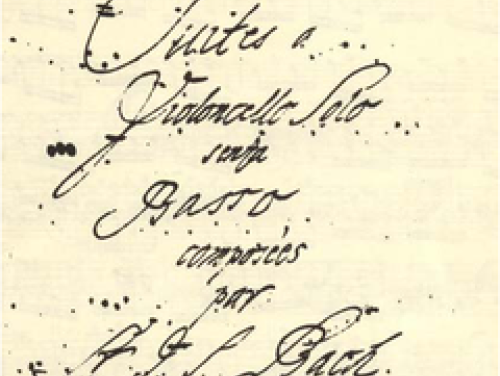 Suites a
Violoncello Solo
senza
Basso
composées
par
Sr. J. S. Bach.